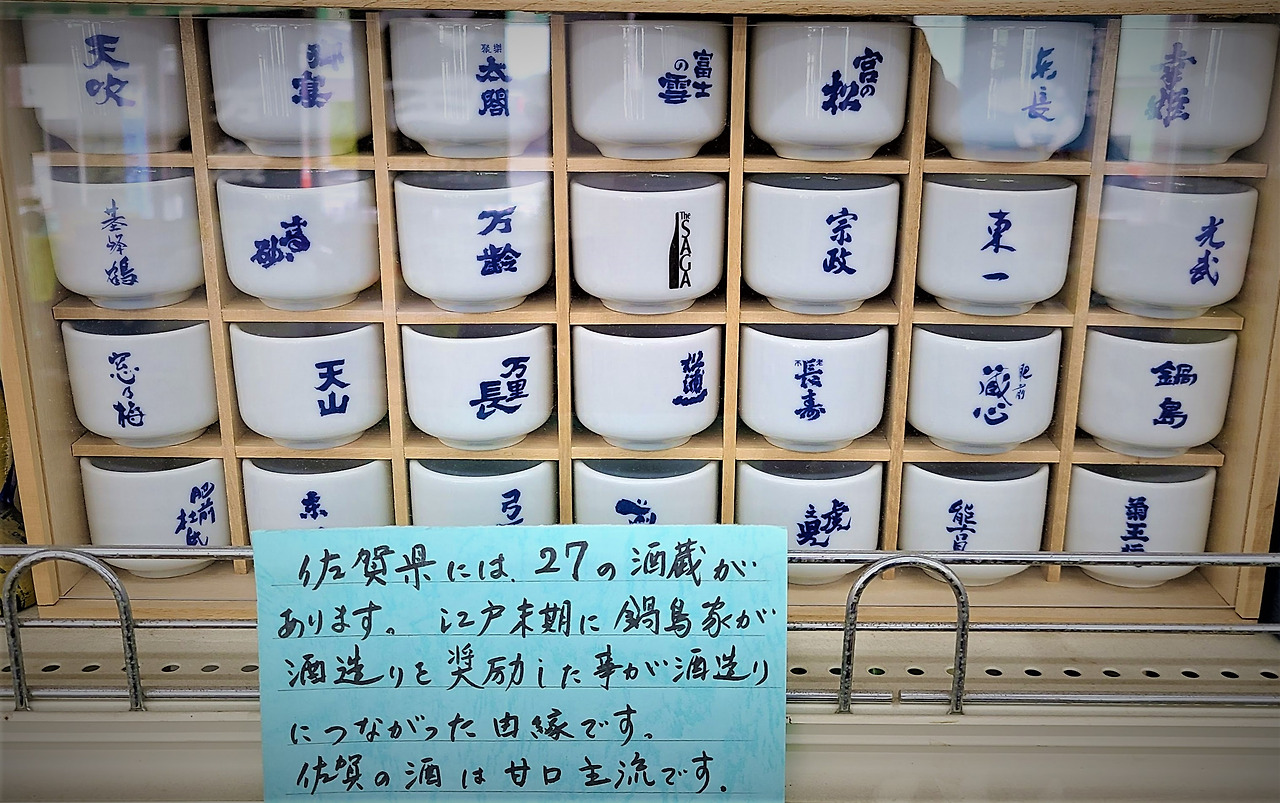 天吹
宴
聚楽
太閤
富士
の雲
宮の
松
東長
幸姫
基峰鶴
高砂
万齢
The
SAGA
宗政
東一
光武
窓乃梅
天山
万里
長
松浦一
長寿
肥前
蔵心
鍋島
肥前
杜氏
弓
虎
菊王
佐賀県には、27の酒蔵が
あります。江戸末期に鍋島家が
酒造りを奨励した事が酒造り
につながった由縁です。
佐賀の酒は甘口主流です。